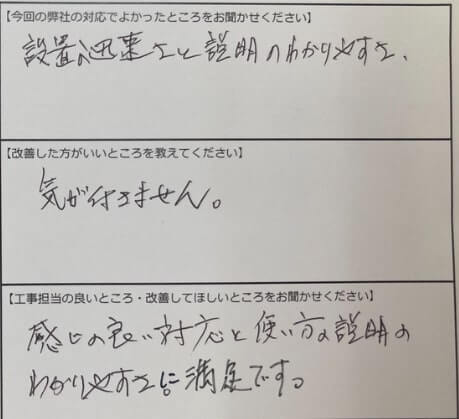 【今回の弊社の対応でよかったところをお聞かせください】
設置の迅速さと説明のわかりやすさ、
【改善した方がいいところを教えてください】
気が付きません。
【工事担当の良いところ・改善してほしいところをお聞かせください】
感じの良い対応と使い方の説明の
わかりやすさに満足です。